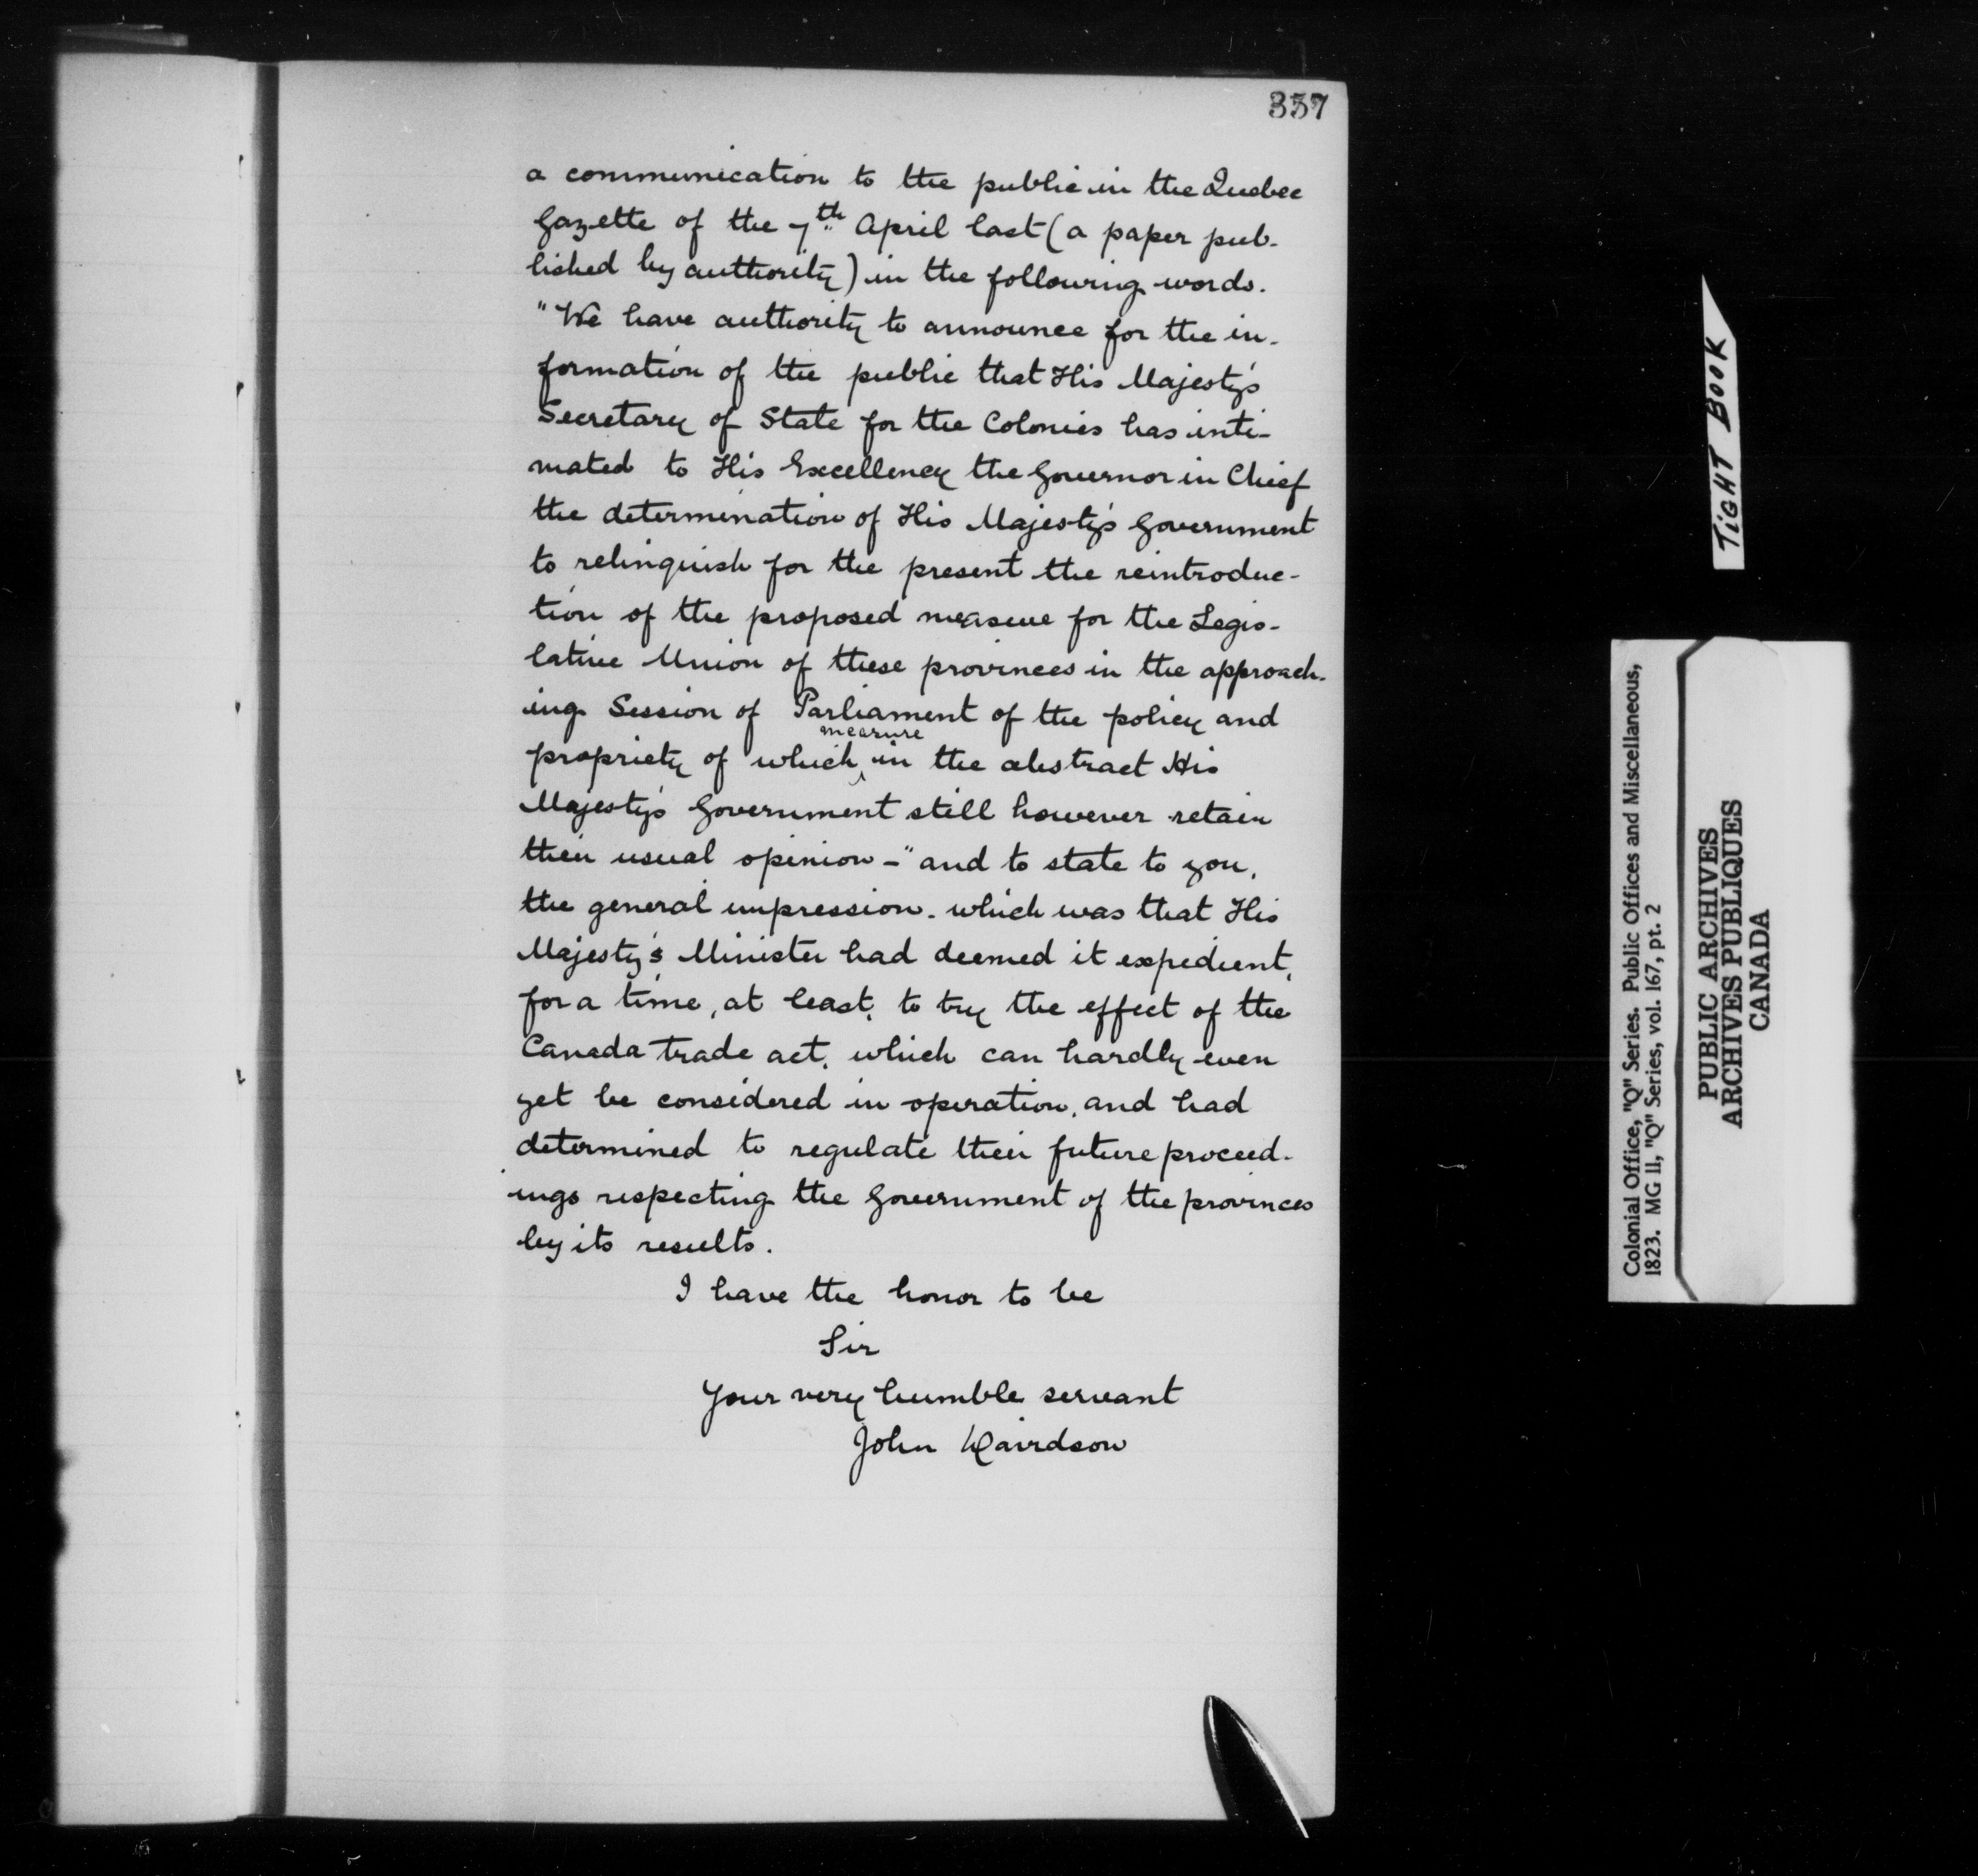 337
a communication to the public in the Quebec
Gazette of the 7th April last (a paper pub-
lished by authority) in the following words.
"We have authority to announce for the in-
formation of the public that His Majesty's
Secretary of State for the Colonies has inti-
mated to His Excellency the Governor in Chief
the determination of His Majesty's Government
to relinquish for the present the reintroduc-
tion of the proposed measure for the Legis-
lative Union of these provinces in the approach-
ing Session of Parliament of the policy and
measure
propriety of which ^ in the abstract His
Majesty's Government still however retain
their usual opinion -" and to state to you,
the general impression. which was that His
Majesty's Minister had deemed it expedient,
for a time, at least, to try the effect of the
Canada trade act, which can hardly even
yet be considered in operation, and had
determined to regulate their future proceed-
ings respecting the Government of the provinces
by its results.
I have the honor to be
Sir
Your very humble servant
John Davidson
TIGHT BOOK
Colonial Office, "Q" Series. Public Offices and Miscellaneous,
1823. MG 11, "Q" Series, vol. 167, pt. 2
PUBLIC ARCHIVES
ARCHIVES PUBLIQUES
CANADA